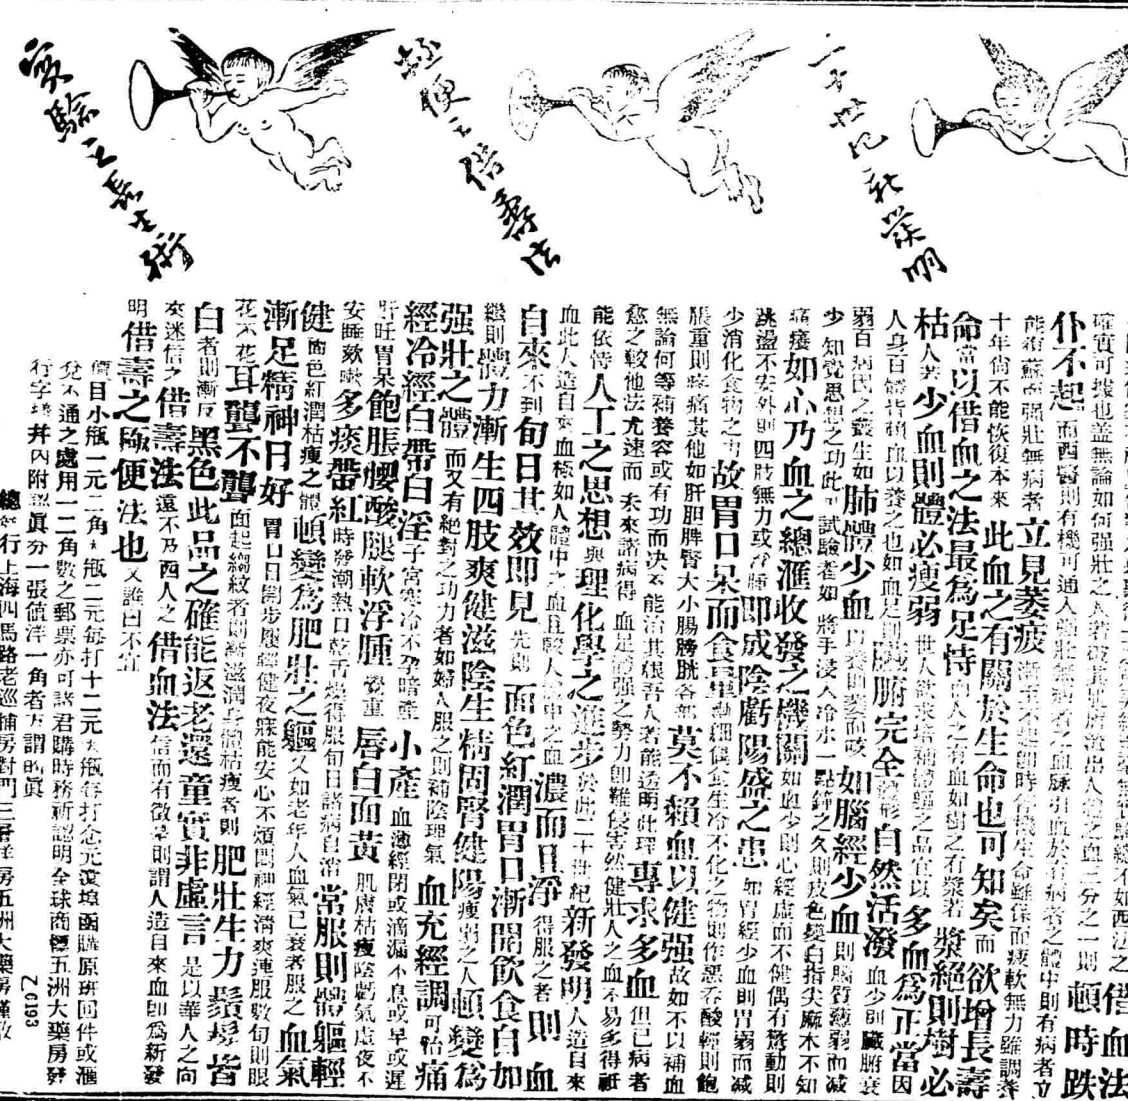 二十世紀新發明
極便之借壽法
實驗之長生術
借血法
確實可據也蓋無論如何强壯之人若從其 流出人身之血三分之一則頓時跌
仆不起而西醫則有機可通入強壯無病者之血脉引血於有病者之體中則有病者立
能復蘇而强壯無病者立見萎疲漸至不起卽時得機生命雖保而疲軟無力雖調養
十年尙不能恢復本來此血之有關於生命也可知矣而欲增長壽
命當以借血之法最爲足恃 人之有血如樹之有漿若漿絕則樹必
枯人若少血則體必瘦弱世人欲求培補體軀之品宜以多血爲正當因
人身百體皆賴血以養之也如血足則臟腑完全 自然活潑血少則臟腑衰
弱百病因之叢生如肺體少血以養則變而咳如腦經少血則腦質薄弱而减
少知覺思想之功此可試驗者如將手浸入冷水一點鐘之久則皮色變白指尖麻木不知
痛癢如心乃血之總滙收發之機關如血少則心經虛而不健偶有驚動則
跳盪不安外則四肢無力或浮腫即成陰虧陽盛之患如胃經少血則胃弱而减
少消化食物之功故胃口呆而食量 偶食生冷不化之物則作惡吞酸輕則飽
脹重則疼痛其他如肝胆脾腎大小腸膀胱各部莫不賴血以健强故如不以補血
無論何等補養容或有功而决不能治其根吾人若能透明此理專求多血但已病者
愈之較他法尤速而未來諸病得血足體强之勢力卽難侵害然健壯人之血不易多得祇
能依恃人工之思想與理化學之進步於此二十世紀新發明人造自來
血此人造自來血極如人體中之血且較人體中之血濃而且淨得服之者則血
自來不到旬日其效即見先則面色紅潤胃口漸開飲食自如
繼則體力漸生四肢爽健滋陰生精固腎健陽瘦弱之人頓變爲
强壯之體而又有絕對之功力者如婦人服之則補陰理氣血充經調可治痛
經冷經白帶白淫子宮寒冷不孕暗產小產血薄經閉或滴漏不息或早或遲
肝旺胃呆飽脹腰酸腿軟浮腫 重唇白面黃肌膚枯瘦陰虧氣虛夜不
安睡欬嗽多痰帶紅時發潮熱口乾舌燥得服旬日諸病自消常服則體軀輕
健面色紅潤枯瘦之體頓變爲肥壯之軀又如老年人血氣已衰者服之血氣
漸足精神日好胃口日開步履輕健夜寐能安心不煩悶神經清爽連服數旬則眼
花不花耳聾不聾面起縐紋者則漸滋潤身體枯瘦者則肥壯生力鬚髮皆
白者則漸反黑色此品之確能返老還童實非虛言是以華人之向
來迷信之借壽法還不及西人之借血法信而有徵 則謂人造自來血卽爲新發
明借壽之極便法也又誰曰不宜
價目小瓶一元二角大瓶二元每打十二元大瓶每打念元 埠函購原班回件或滙
兌不通之處用一二角數之郵票亦可諸君購時務祈認明全球商標五洲大藥房發
行字樣并內附認眞分一張值洋一角者方謂的眞
總發行上海四馬路老巡捕房對門三層洋房五洲大藥房謹啟
Z 0193